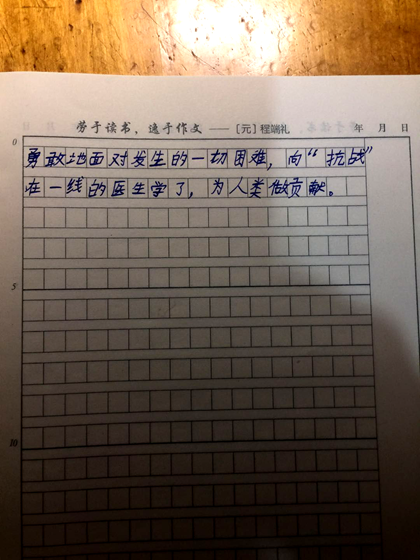 劳于读书，逸于作文 —— [元] 程端礼 年 月 日
0
勇敢地面对发生的一切困难，向“抗战”
在一线的医生学了，为人类做贡献。
5
10